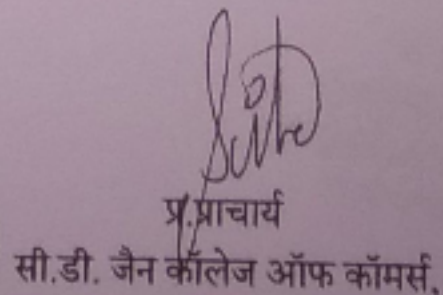 प्र.प्राचार्य
सी.डी. जैन कॉलेज ऑफ कॉमर्स,